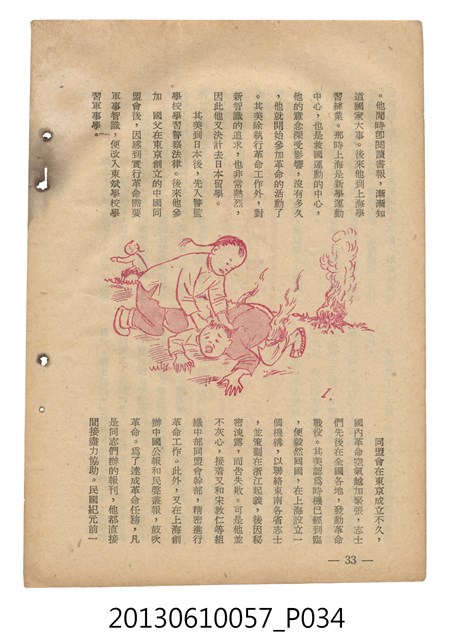 。他閒時即閱讀書報，漸漸知
道國家大事。後來他到上海學
習絲業。那時上海是新學運動
中心，也是救國運動的中心，
他的意念深受影響，沒有多久
，他就開始參加革命的活動了
。其美除執行革命工作外，對
新智識的追求，也非常熱烈，
因此他又決計去日本留學。
其美到日本後，先入警監
學校學習警察法律。後來他參
加　國父在東京創立的中國同
盟會後，因感到實行革命需要
軍事智識，便改入東斌學校學
習軍事學。
1.
同盟會在東京成立不久，
國內革命空氣愈加緊張，志士
們先後在全國各地，發動革命
戰役。其美認為時機已經到臨
，便毅然回國，在上海設立一
個機構，以聯絡東南各省志士
，並策劃在浙江起義，後因秘
密洩露，而告失敗。可是他並
不灰心，接着又和宋教仁等組
織中部同盟會幹部，精密進行
革命工作。此外，又在上海創
辦中國公報和民聲叢報，鼓吹
革命。為了達成革命任務，凡
是同志們辦的報刊，他都直接
間接盡力協助。民國紀元前一
— 33 —
20130610057_P034